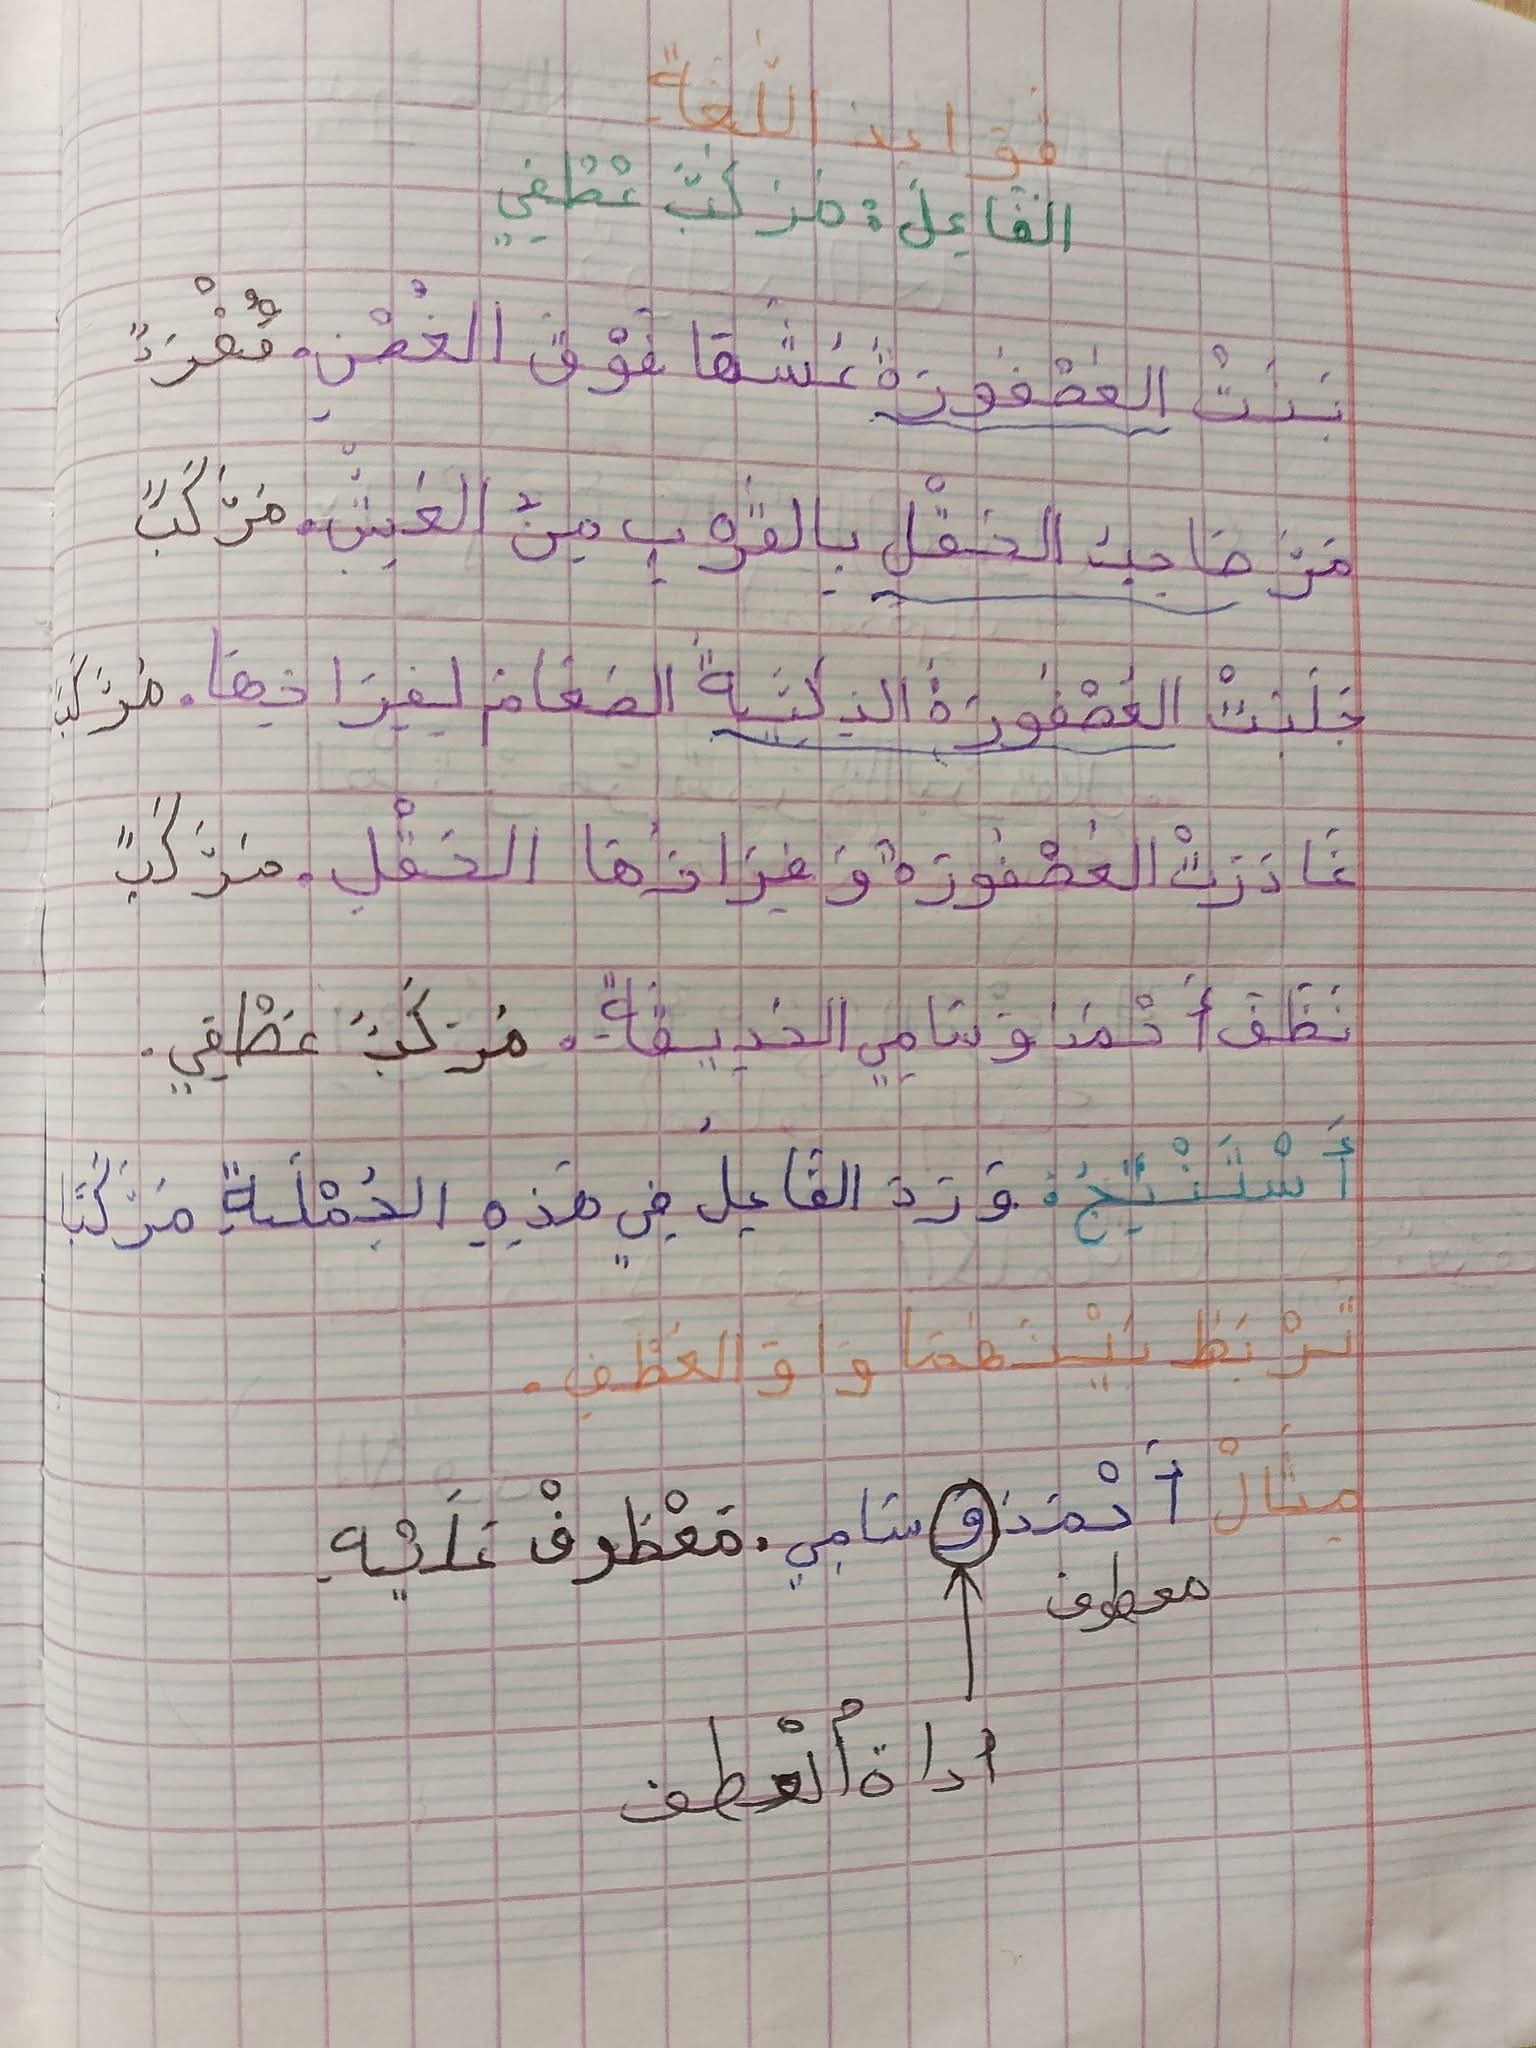 قواعد اللُّغَةِ
الفَاعِلُ: مُرَكَّبٌ عَطْفِي
بَنَتْ العُصْفُورَةُ عُشَّهَا فَوْقَ الغُصْنِ. مُفْرَدٌ
مَرَّ صَاحِبُ الحَقْلِ بِالقُرْبِ مِنَ العُشِّ. مُرَكَّبٌ
جَلَبَتْ العُصْفُورَةُ الذَكِيَّةُ الطَعَامَ لِفِرَاخِهَا. مُرَكَّبٌ
غَادَرَتْ العُصْفُورَةُ وَفِرَاخُهَا الحَقْلِ. مُرَكَّبٌ
نَظَّفَ أَحْمَدُ وَسَامِي الحَدِيقَةَ. مُرَكَّبٌ عَطْفِي.
أَسْتَنْتِجُ: وَرَدَ الفَاعِلُ فِي هَذِهِ الجُمْلَةِ مُرَكَّبًا
تَرْبِطُ بَيْنَهُمَا وَاوَ العَطْفِ.
مِثَالْ أَحْمَدُ وَ سَامِي. مَعْطُوفْ عَلَيْهِ
معطوف
أداة ألعْطف